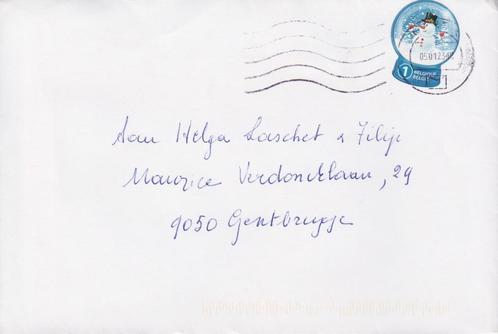 1 BELGIQUE
BELGIË
Aan Helga Laschet & Filip
Maurice Verdoncklaan, 29
9050 Gentbrugge